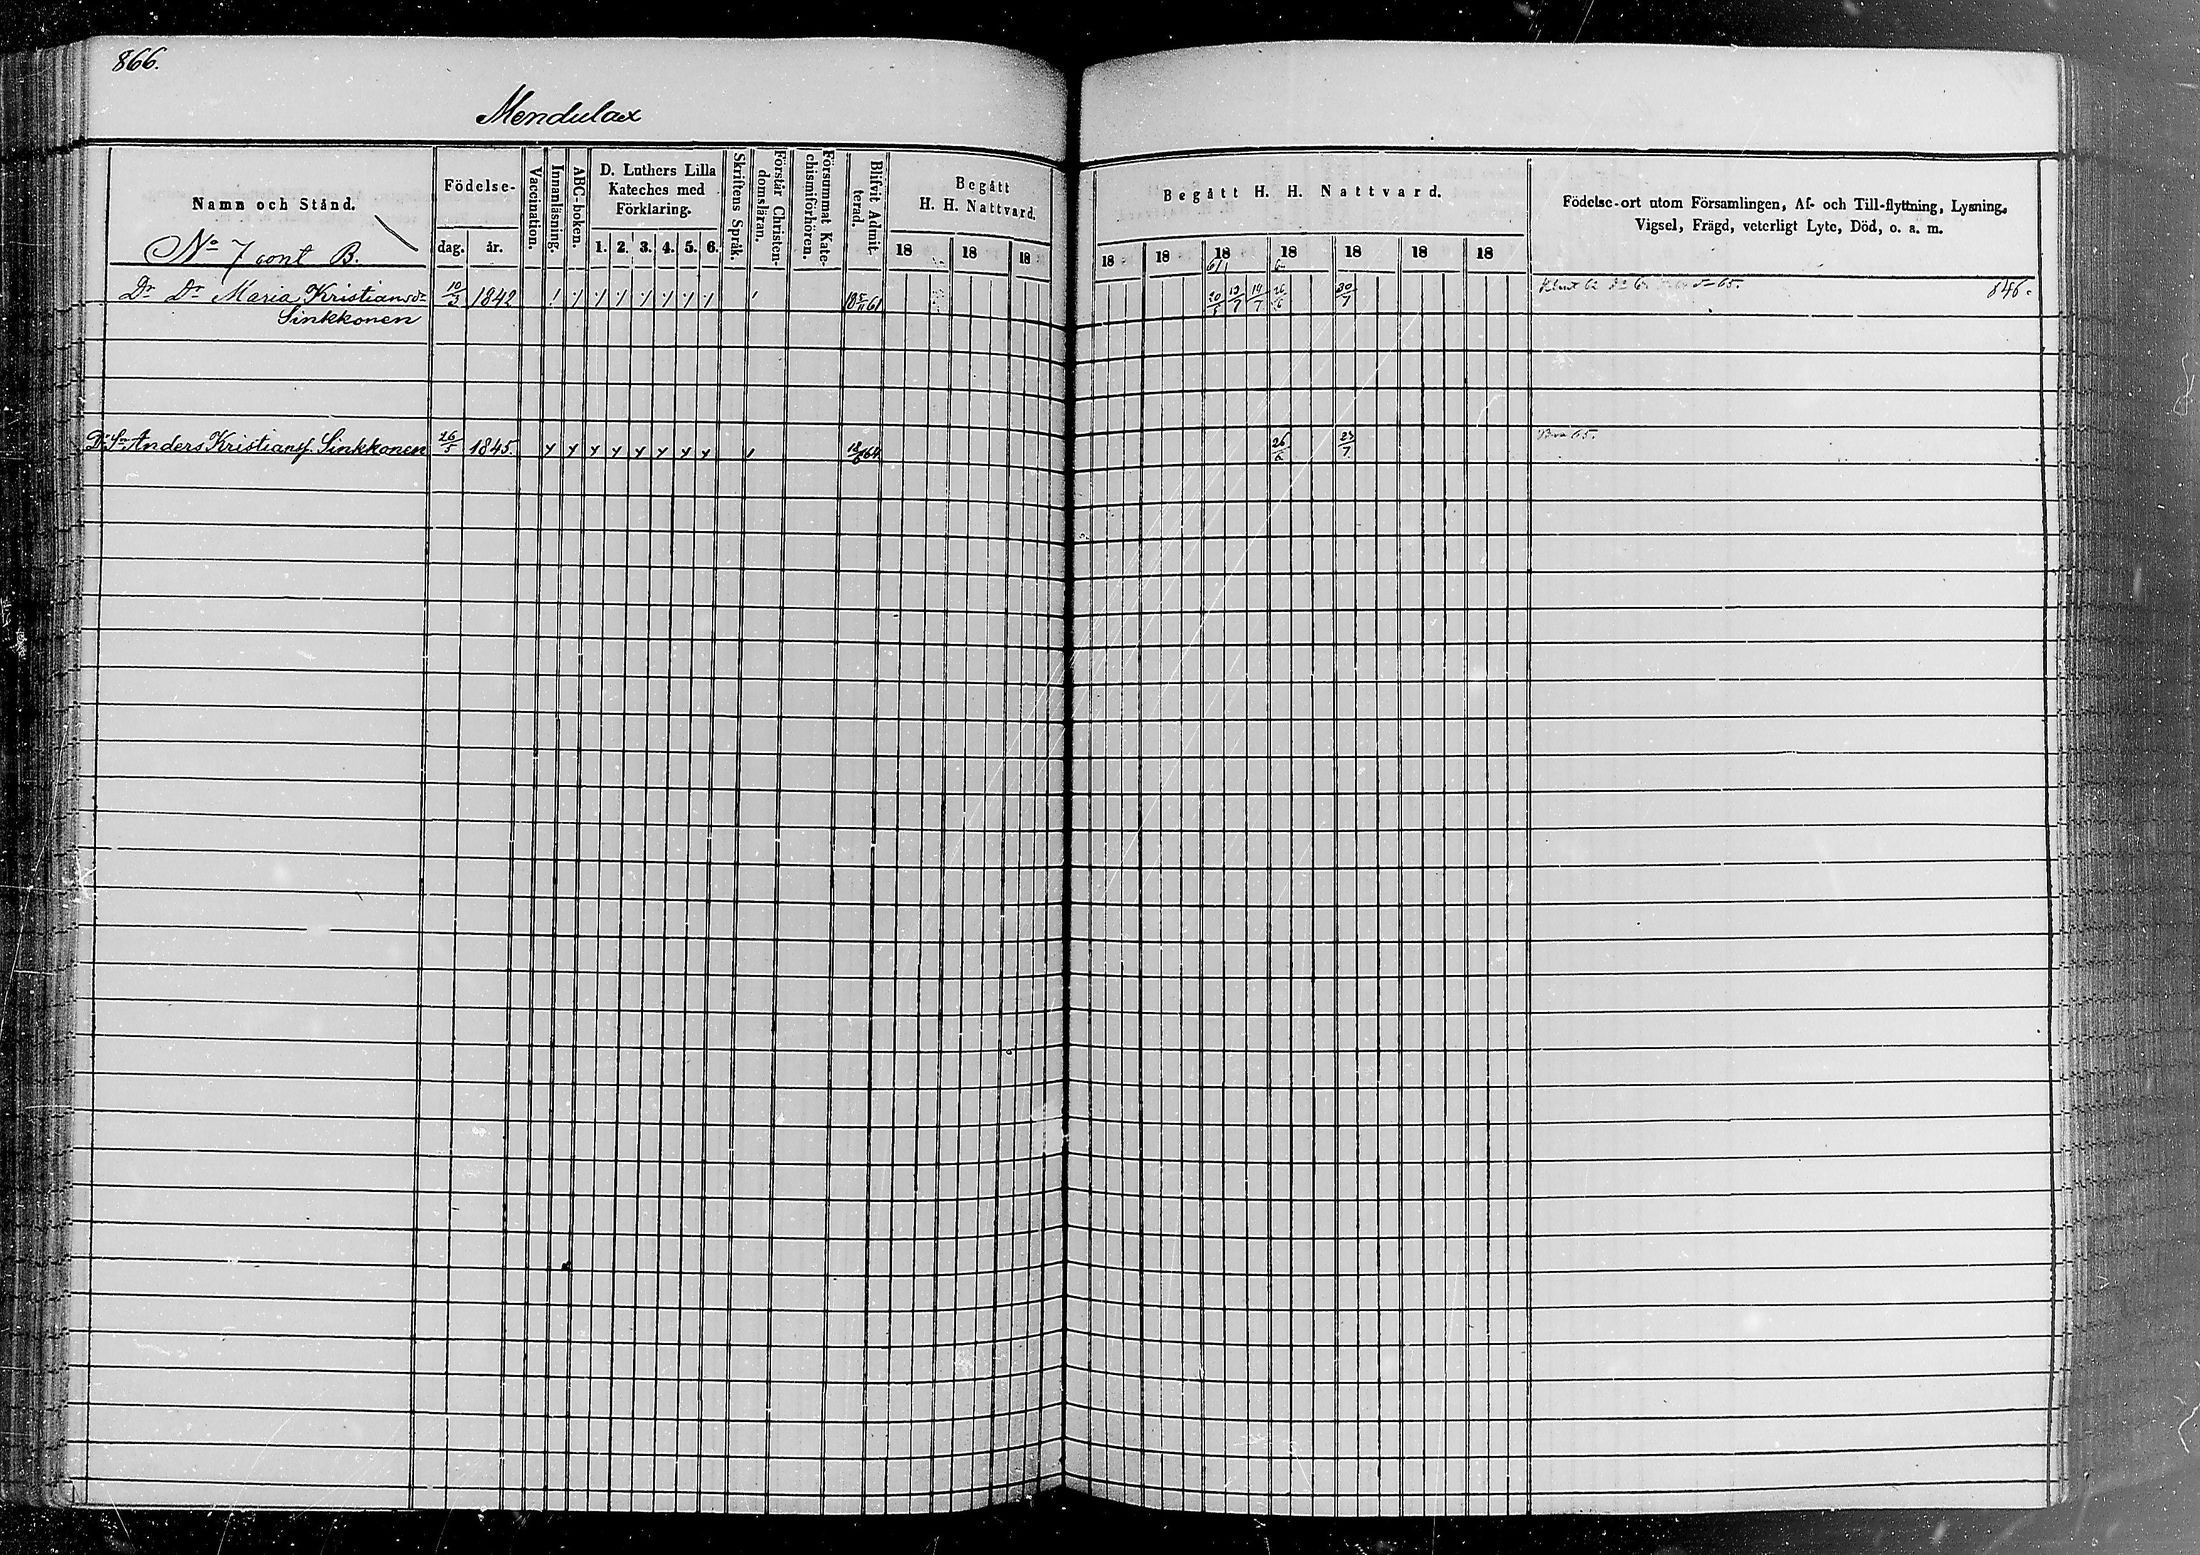 866.
Mendulax
Namn och Stånd.
Födelse-
dag.
år.
Vaccination.
Innanläsning.
ABC-boken.
D. Luthers Lilla
Kateches med
Förklaring.
1. 2. 3. 4. 5. 6.
Skriftens Språk.
Förstår Christen-
domsläran.
Försummat Kate-
chismiförhören.
Blifvit Admit-
terad.
Begått
H. H. Nattvard.
18 18 18
Begått H. H. Nattvard.
18 18 18 18 18 18 18
61
Födelse-ort utom Församlingen, Af- och Till-flyttning, Lysning,
Vigsel, Frägd, veterligt Lyte, Död, o. a. m.
No 7 cont B.
Dr Dr Maria Kristiansdr 10/3 1842 61 20/5 13/7 14/7 26/6 30/7 65. 846.
Sinkkonen
Dr Sn Anders Kristianss. Sinkkonen 26/5 1845. 64 26/6 23/7 65.